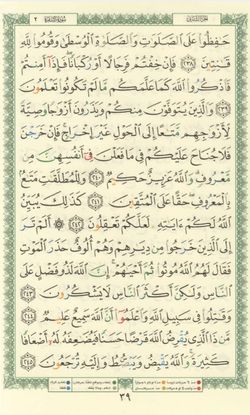 سُورَةُ البَقَرَةِ ٢
حَٰفِظُوا۟ عَلَى ٱلصَّلَوَٰتِ وَٱلصَّلَوٰةِ ٱلْوُسْطَىٰ وَقُومُوا۟ لِلَّهِ
قَٰنِتِينَ ٢٣٨ فَإِنْ خِفْتُمْ فَرِجَالًا أَوْ رُكْبَانًا فَإِذَآ أَمِنتُمْ
فَٱذْكُرُوا۟ ٱللَّهَ كَمَا عَلَّمَكُم مَّا لَمْ تَكُونُوا۟ تَعْلَمُونَ
٢٣٩ وَٱلَّذِينَ يُتَوَفَّوْنَ مِنكُمْ وَيَذَرُونَ أَزْوَٰجًا وَصِيَّةً
لِّأَزْوَٰجِهِم مَّتَٰعًا إِلَى ٱلْحَوْلِ غَيْرَ إِخْرَاجٍ فَإِنْ خَرَجْنَ
فَلَا جُنَاحَ عَلَيْكُمْ فِى مَا فَعَلْنَ فِىٓ أَنفُسِهِنَّ مِن
مَّعْرُوفٍ وَٱللَّهُ عَزِيزٌ حَكِيمٌ ٢٤٠ وَلِلْمُطَلَّقَٰتِ مَتَٰعٌۢ
بِٱلْمَعْرُوفِ حَقًّا عَلَى ٱلْمُتَّقِينَ ٢٤١ كَذَٰلِكَ يُبَيِّنُ
ٱللَّهُ لَكُمْ ءَايَٰتِهِۦ لَعَلَّكُمْ تَعْقِلُونَ ٢٤٢ أَلَمْ تَرَ
إِلَى ٱلَّذِينَ خَرَجُوا۟ مِن دِيَٰرِهِمْ وَهُمْ أُلُوفٌ حَذَرَ ٱلْمَوْتِ
فَقَالَ لَهُمُ ٱللَّهُ مُوتُوا۟ ثُمَّ أَحْيَٰهُمْ إِنَّ ٱللَّهَ لَذُو فَضْلٍ عَلَى
ٱلنَّاسِ وَلَٰكِنَّ أَكْثَرَ ٱلنَّاسِ لَا يَشْكُرُونَ ٢٤٣
وَقَٰتِلُوا۟ فِى سَبِيلِ ٱللَّهِ وَٱعْلَمُوٓا۟ أَنَّ ٱللَّهَ سَمِيعٌ عَلِيمٌ ٢٤٤
مَّن ذَا ٱلَّذِى يُقْرِضُ ٱللَّهَ قَرْضًا حَسَنًا فَيُضَٰعِفَهُۥ لَهُۥٓ أَضْعَافًا
كَثِيرَةً وَٱللَّهُ يَقْبِضُ وَيَبْصُۜطُ وَإِلَيْهِ تُرْجَعُونَ ٢٤٥
٣٩